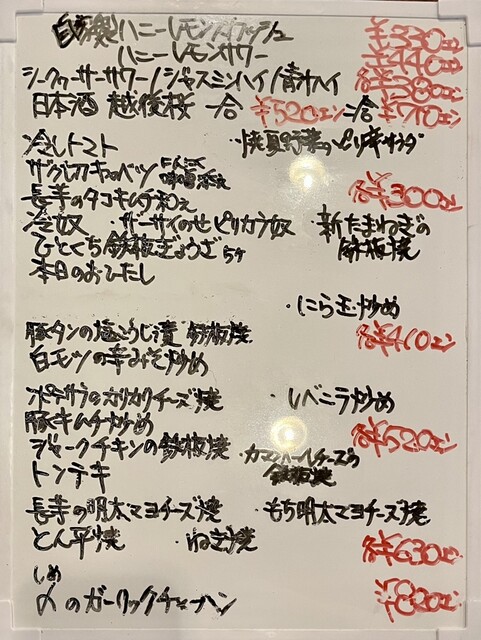 自家製ハニーレモンスカッシュ ¥330エン
ハニーレモンサワー ¥440エン
シークヮーサーサワー/ジャスミンハイ/青汁ハイ 各¥380エン
日本酒 越後桜 一合 ¥520エン 二合 ¥770エン
冷しトマト ・焼夏野菜のピリ辛サラダ
ザク切りキャベツ にんにく味噌添え
長芋のタコキムチ和え 各¥300エン
冷奴 ・ザーサイのせピリカラ奴 ・新たまねぎの鉄板焼
ひとくち鉄板ぎょうざ5ヶ
本日のおひたし
・にら玉炒め
豚タンの塩こうじ漬 鉄板焼 各¥410エン
白モツの辛みそ炒め
ポテサラのカリカリチーズ焼 ・レバニラ炒め
豚キムチ炒め
ジャークチキンの鉄板焼 ・カマンベールチーズの鉄板焼 各¥520エン
トンテキ
長芋の明太マヨチーズ焼 ・もち明太マヨチーズ焼
とん平焼 ・ねぎ焼 各¥630エン
しめ
〆のガーリックチャーハン ¥820エン